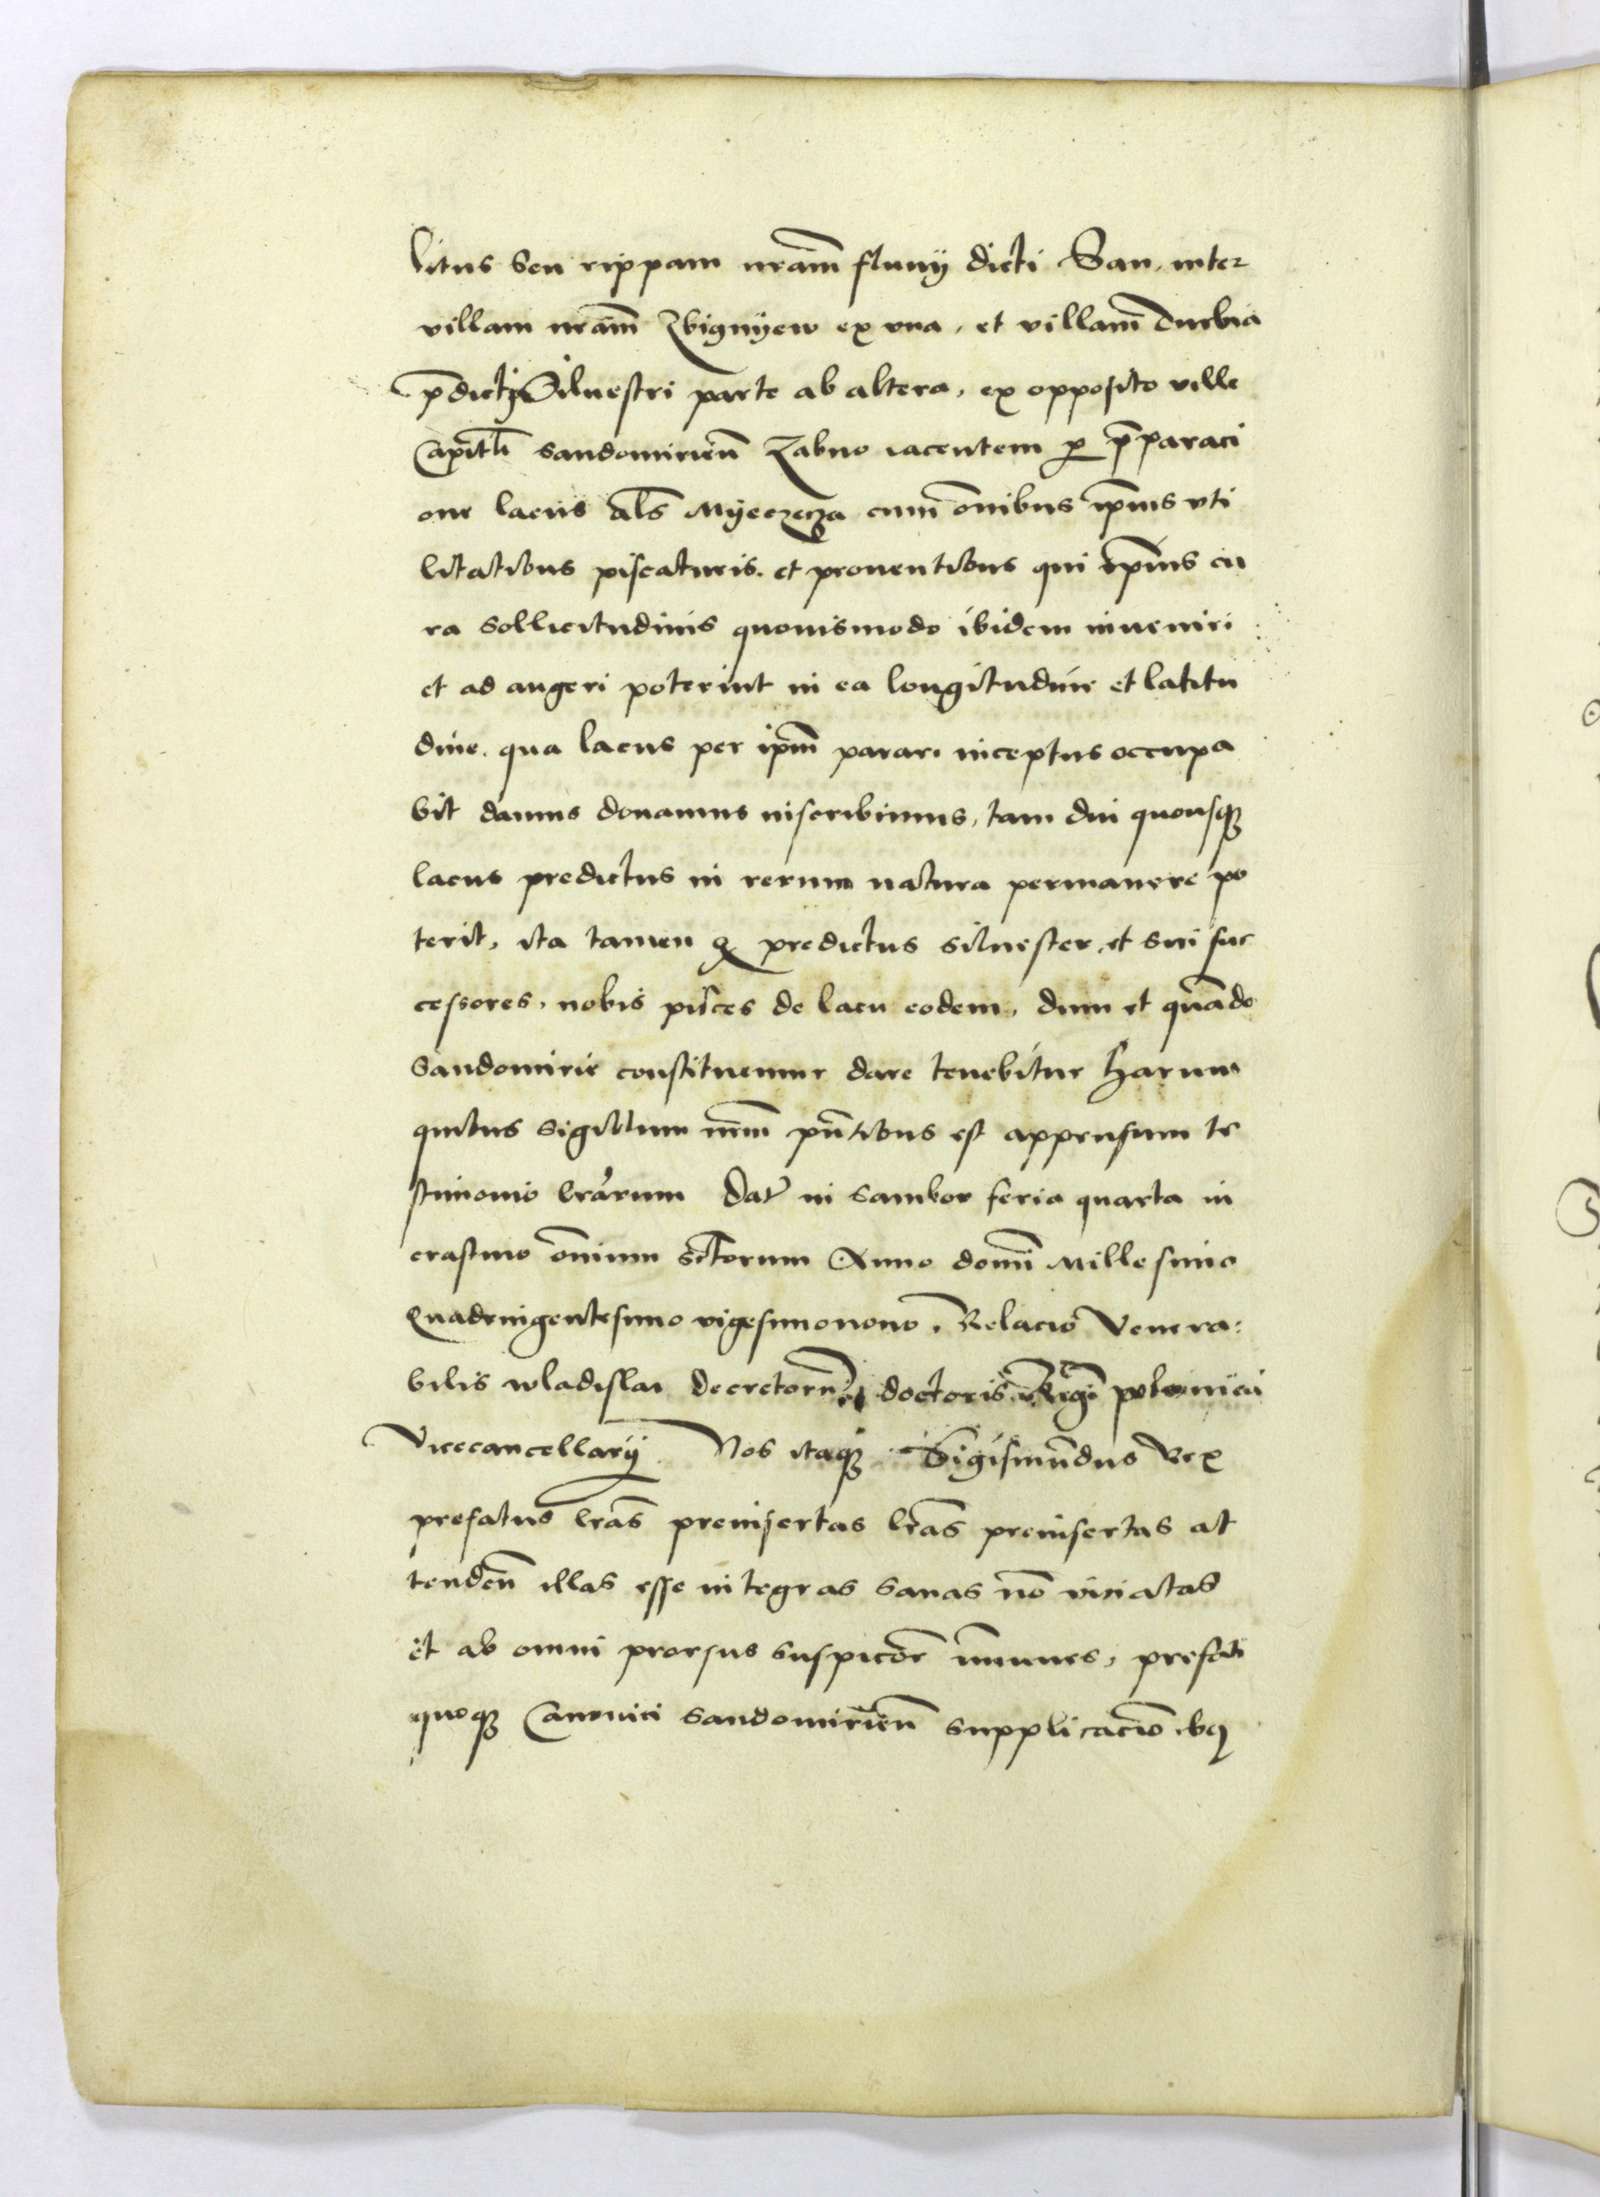 litus seu rippam nr̃am fluuÿ dicti San, inter
villam nr̃am Zbignÿew ex vna, et villam̃ Durbia
p̃dictj Siluestri parte ab altera, ex opposito ville
Capitłi sandomirien̄ Zabno iacentem p̲ p̃paraci
one lacus al̃s Myeczcza cum̃ om̃ibus ip̃ius vti
litatibus piscaturis. et prouentibus qui ip̃ius cu
ra sollicitudinis quouismodo ibidem inueniri
et ad augeri poterint in ea longitudine et latitu
dine. qua lacus per ip̃m parari inceptus occupa
bit damus donamus inscribimus, tam diu quousqꝫ
lacus predictus in rerum natura permanere po
terit, ita tamen ꝙ predictus siluester, et sui suc
cessores, nobis pisces de lacu eodem, dum et quãdo
Sandomirie constituemur dare tenebitur Harum
quibus sigillum nr̃m pñtibus est appensum te
stimonio lr̃arum Dat̃ in sambor feria quarta in
crastino om̃ium sctõrum Anno domĩ Millesimo
Quadringentesimo vigesimonono, Relacio Venera:
bilis wladislai decretorum doctoris Regni polonie
Vicecancellarÿ. Nos itaqꝫ Sigismũdus Rex
prefatus lr̃as preinsertas lr̃as preinsertas at
tenden̄ illas esse integras sanas nõ viciatas
et ab omni prorsus suspicõe im̃unes, prefati
quoqꝫ Canonici Sandomirien̄ supplicacioībꝫ